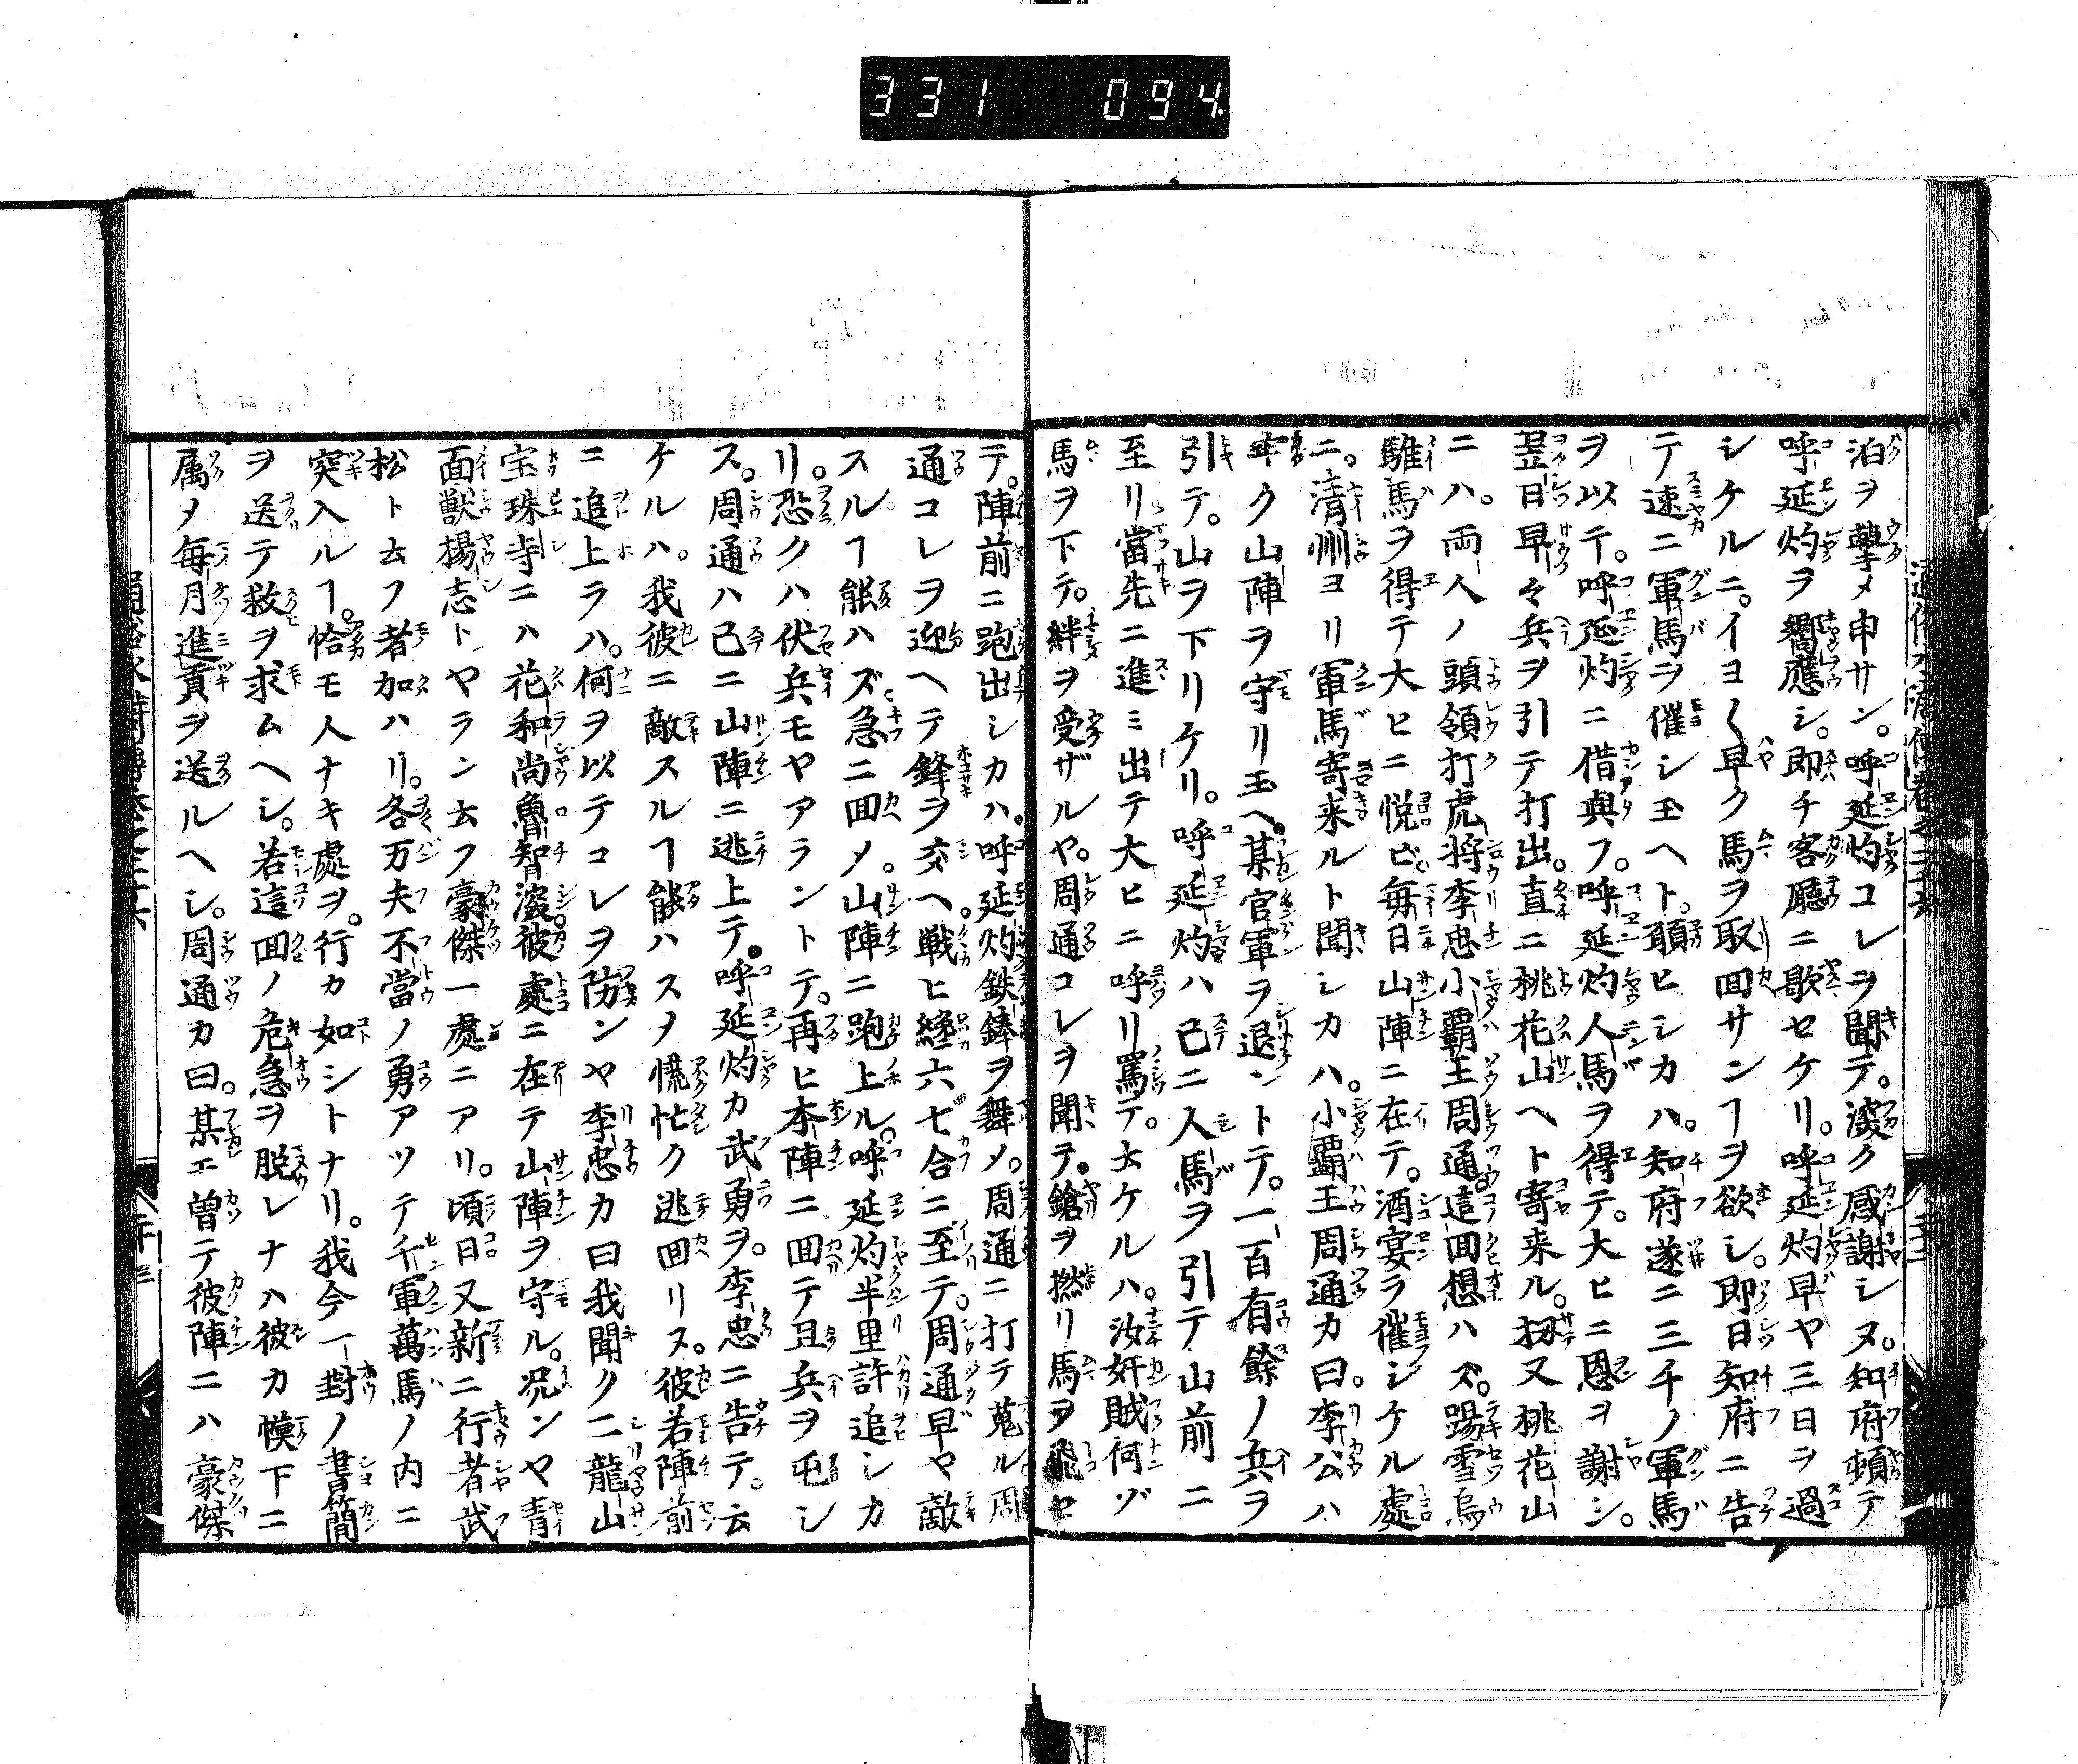 331 094
泊ヲ擊メ申サン。呼延灼コレヲ聞テ。深ク感謝シヌ。知府頓テ
呼延灼ヲ饗應シ。即チ客廳ニ歇セケリ。呼延灼早ヤ三日ヲ過
シケルニ。イヨ〱早ク馬ヲ取囬サンヿヲ欲シ。即日知府ニ告
テ速ニ軍馬ヲ催シ玉ヘト。頼ヒシカハ。知府遂ニ三千ノ軍馬
ヲ以テ。呼延灼ニ借與フ。呼延灼人馬ヲ得テ。大ヒニ恩ヲ謝シ。
翌日早々兵ヲ引テ打出。直ニ桃花山ヘト寄来ル。扨又桃花山
ニハ。両人ノ頭領打虎将李忠小覇王周通這囬想ハズ。踢雪烏
騅馬ヲ得テ大ヒニ悦ビ。毎日山陣ニ在テ。酒宴ヲ催シケル處
ニ。清州ヨリ軍馬寄来ルト聞シカハ。小覇王周通カ曰。李公ハ
牢ク山陣ヲ守リ玉ヘ。某官軍ヲ退ントテ。一百有餘ノ兵ヲ
引テ。山ヲ下リケリ。呼延灼ハ已ニ人馬ヲ引テ山前ニ
至リ當先ニ進ミ出テ大ヒニ呼リ罵テ。云ケルハ。汝奸賊何ゾ
馬ヲ下テ。絆ヲ受ザルヤ。周通コレヲ聞テ。鎗ヲ撚リ馬ヲ飛セ
テ。陣前ニ跑出シカハ。呼延灼鉄鋒ヲ舞メ。周通ニ打テ蒐ル周
通コレヲ迎ヘテ鋒ヲ交ヘ。戦ヒ纔六七合ニ至テ。周通早ヤ敵
スルヿ能ハズ。急ニ囬メ。山陣ニ跑上ル。呼延灼半里許追シカ
リ。恐クハ伏兵モヤアラントテ。再ヒ本陣ニ囬テ且兵ヲ屯シ
ス。周通ハ已ニ山陣ニ逃上テ。呼延灼カ武勇ヲ。李忠ニ告テ。云
ケルハ。我彼ニ敵スルヿ能ハスメ慌忙ク逃囬リス。彼若陣前
ニ追上ラハ。何ヲ以テコレヲ防ンヤ李忠カ曰我聞ク二龍山
宝珠寺ニハ花和尚魯智深。彼處ニ在テ山陣ヲ守ル。况ンヤ青
面獣揚志トヤラン云フ豪傑一處ニアリ。頃日又新ニ行者武
松ト云フ者加ハリ。各万夫不當ノ勇アツテ千軍萬馬ノ内ニ
突入ルヿ。恰モ人ナキ處ヲ。行カ如シトナリ。我今一封ノ書簡
ヲ送テ救ヲ求ムヘシ。若這囬ノ危急ヲ脱レナハ彼カ幙下ニ
属メ毎月進貢ヲ送ルヘシ。周通カ曰。某エ曽テ彼陣ニハ豪傑